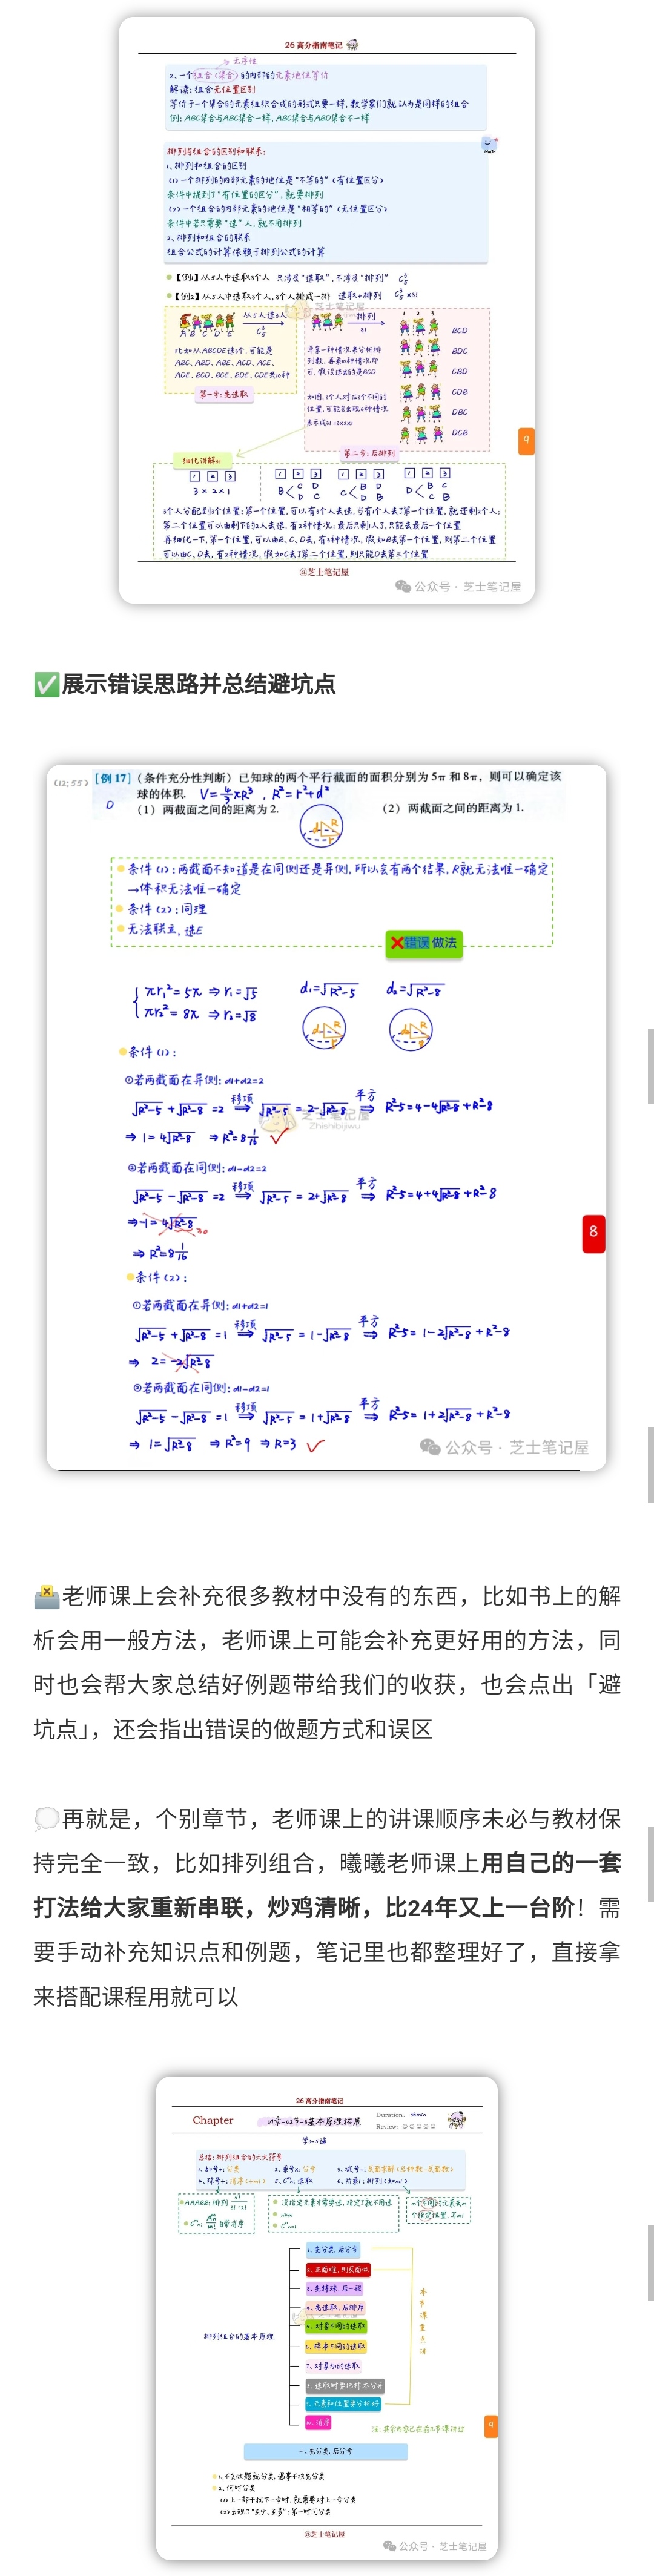 26 高分指南笔记
无序性
2、一个组合(集合)的内部的元素地位等价
解读：组合无位置区别
等价于一个集合的元素组织合成的形式只要一样，数学家们就认为是同样的组合
例：ABC集合与ABC集合一样，ABC集合与ABD集合不一样
排列与组合的区别和联系：
1、排列和组合的区别
(1)一个排列的内部元素的地位是“不等的”(有位置区分)
条件中提到了“有位置的区分”，就要排列
(2)一个组合的内部元素的地位是“相等的”(无位置区分)
条件中若只需要“选”人，就不用排列
2、排列和组合的联系
组合公式的计算依赖于排列公式的计算
【例1】从5人中选取3个人 只涉及“选取”，不涉及“排列” C₅³
【例2】从5人中选取3个人，3个人排成一排 选取+排列 C₅³ ×3!
芝士笔记屋
从5人选3人
C₅³
A B C D E
比如从ABCDE选3个，可能是
ABC、ABD、ABE、ACD、ACE、
ADE、BCD、BCE、BDE、CDE共10种
第一步：先选取
排列
3!
1 2 3
BCD
BDC
CBD
CDB
DBC
DCB
单拿一种情况来分析排
列数，再乘10种情况即
可，假设选出的是BCD
如图，3个人对应3个不同的
位置，可能会出现6种情况
表示成3! =3×2×1
第二步：后排列
细化讲解3!
1 2 3
3 × 2 × 1
1 2 3
B C D
D C
1 2 3
C B D
D B
1 2 3
D B C
C B
3个人分配到3个位置：第一个位置，可以有3个人去选，当有1个人去了第一个位置，就还剩2个人；
第二个位置可以由剩下的2人去选，有2种情况；最后只剩1人了，只能去最后一个位置
再细化一下，第一个位置，可以由B、C、D去，有3种情况，假如B去第一个位置，则第二个位置
可以由C、D去，有2种情况，假如C去了第二个位置，则只能D去第三个位置
9
@芝士笔记屋
公众号 · 芝士笔记屋
✅展示错误思路并总结避坑点
(12:55) [例 17] (条件充分性判断) 已知球的两个平行截面的面积分别为 5π 和 8π，则可以确定该
球的体积. V=4/3πR³，R²=r²+d²
D
(1) 两截面之间的距离为 2. (2) 两截面之间的距离为 1.
条件(1)：两截面不知道是在同侧还是异侧，所以会有两个结果，R就无法唯一确定
→体积无法唯一确定
条件(2)：同理
无法联立，选E
❌错误 做法
πr₁²=5π ⇒ r₁=√5
πr₂²=8π ⇒ r₂=√8
d₁=√R²-5 d₂=√R²-8
条件(1)：
①若两截面在异侧：d1+d2=2
√R²-5 + √R²-8 =2 移项⇒ √R²-5 = 2-√R²-8 平方⇒ R²-5=4-4√R²-8+R²-8
⇒ 1=4√R²-8 ⇒ R²=8 1/16 ✓
芝士笔记屋
Zhishibijiwu
②若两截面在同侧：d1-d2=2
√R²-5 - √R²-8 =2 移项⇒ √R²-5 = 2+√R²-8 平方⇒ R²-5=4+4√R²-8+R²-8
⇒-1=4√R²-8 ≥0
⇒ R²=8 1/16
条件(2)：
①若两截面在异侧：d1+d2=1
√R²-5 + √R²-8 =1 移项⇒ √R²-5 = 1-√R²-8 平方⇒ R²-5=1-2√R²-8+R²-8
⇒ 2=-2√R²-8
②若两截面在同侧：d1-d2=1
√R²-5 - √R²-8 =1 移项⇒ √R²-5 = 1+√R²-8 平方⇒ R²-5=1+2√R²-8+R²-8
⇒ 1=√R²-8 ⇒ R²=9 ⇒ R=3 ✓
8
公众号 · 芝士笔记屋
老师课上会补充很多教材中没有的东西，比如书上的解
析会用一般方法，老师课上可能会补充更好用的方法，同
时也会帮大家总结好例题带给我们的收获，也会点出「避
坑点」，还会指出错误的做题方式和误区
再就是，个别章节，老师课上的讲课顺序未必与教材保
持完全一致，比如排列组合，曦曦老师课上用自己的一套
打法给大家重新串联，炒鸡清晰，比24年又上一台阶！需
要手动补充知识点和例题，笔记里也都整理好了，直接拿
来搭配课程用就可以
26 高分指南笔记
Chapter
09章-02节-3基本原理拓展
Duration：
Review：
总结：排列组合的六大符号
1、加号+：分类 2、乘号×：分步 3、减号-：反面求解(总种数-反面数)
4、除号÷：消序(÷m!) 5、Cₙᵐ：选取 6、符号!：排列(如m!)
AAABB：排列
没指定元素才需要选，指定了就不用选
n≥m
排列组合的基本原理
1、先分类，后分步
2、正面难，则反面做
3、先特殊，后一般
4、先选取，后排序
5、对象不同的选取
6、样本不同的选取
8、选取时要把样本分开
9、元素和位置要分析好
10、消序
本
节
课
重
点
讲
注：其余内容已在前几节课讲过
一、先分类，后分步
1、不会做题就分类，遇事不决先分类
2、何时分类
(2)出现了“至少、至多”：第一时间分类
9
@芝士笔记屋
公众号 · 芝士笔记屋